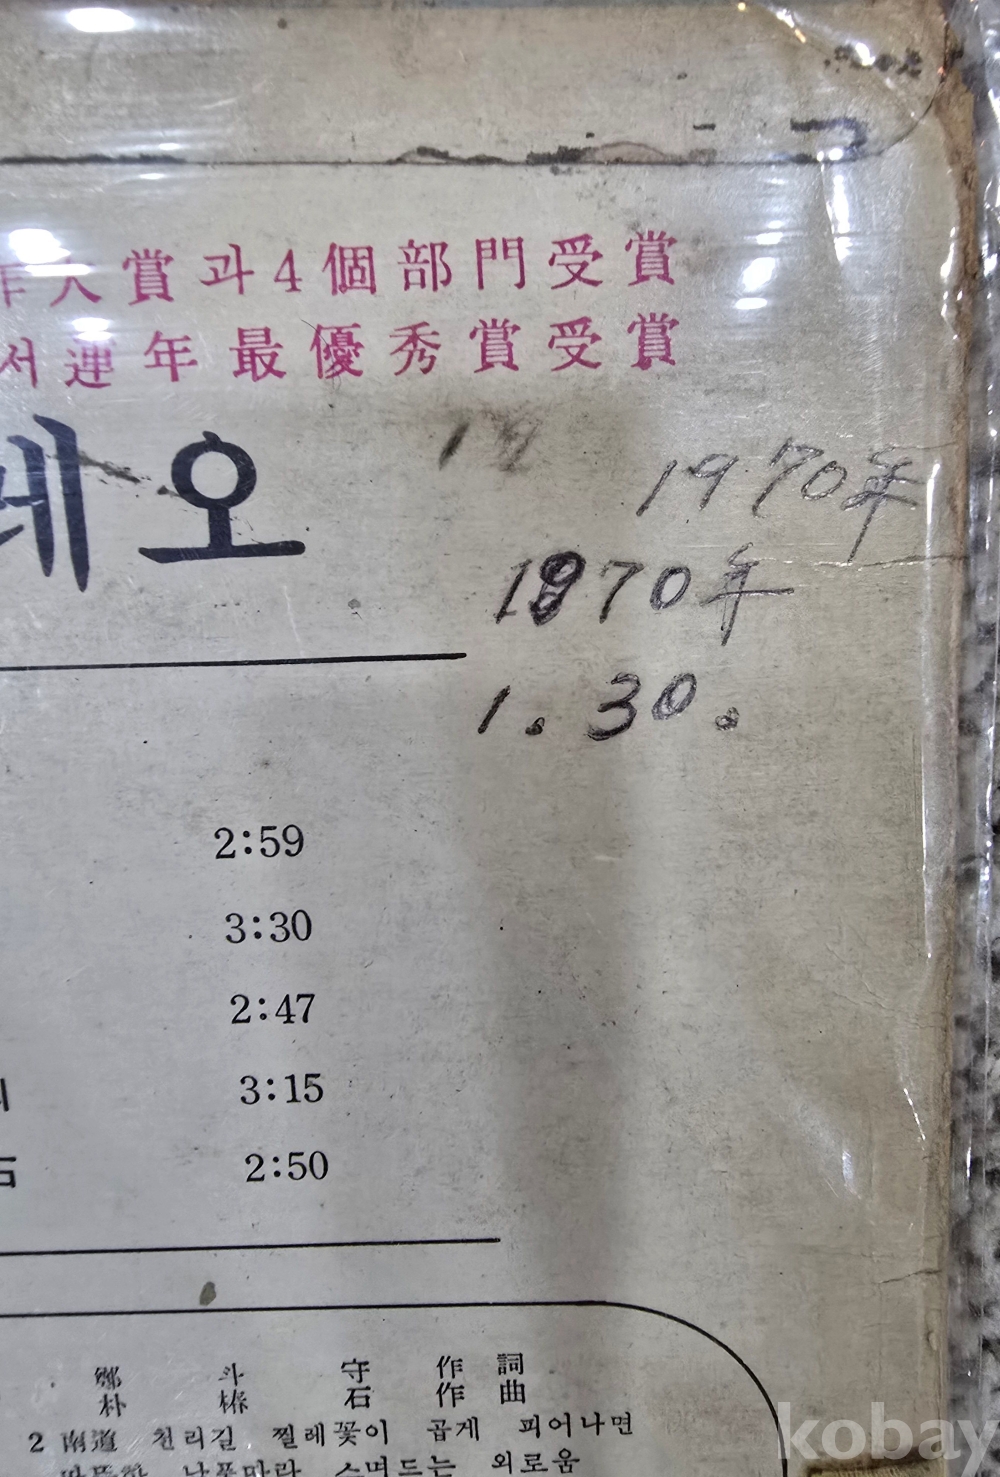 大賞과4個部門受賞
서連年最優秀賞受賞
레오
1970年
1970年
1.30.
2:59
3:30
2:47
3:15
2:50
鄭斗守作詞
朴椿石作曲
2 南道 천리길 찔레꽃이 곱게 피어나면
스며드는 외로움
kobay